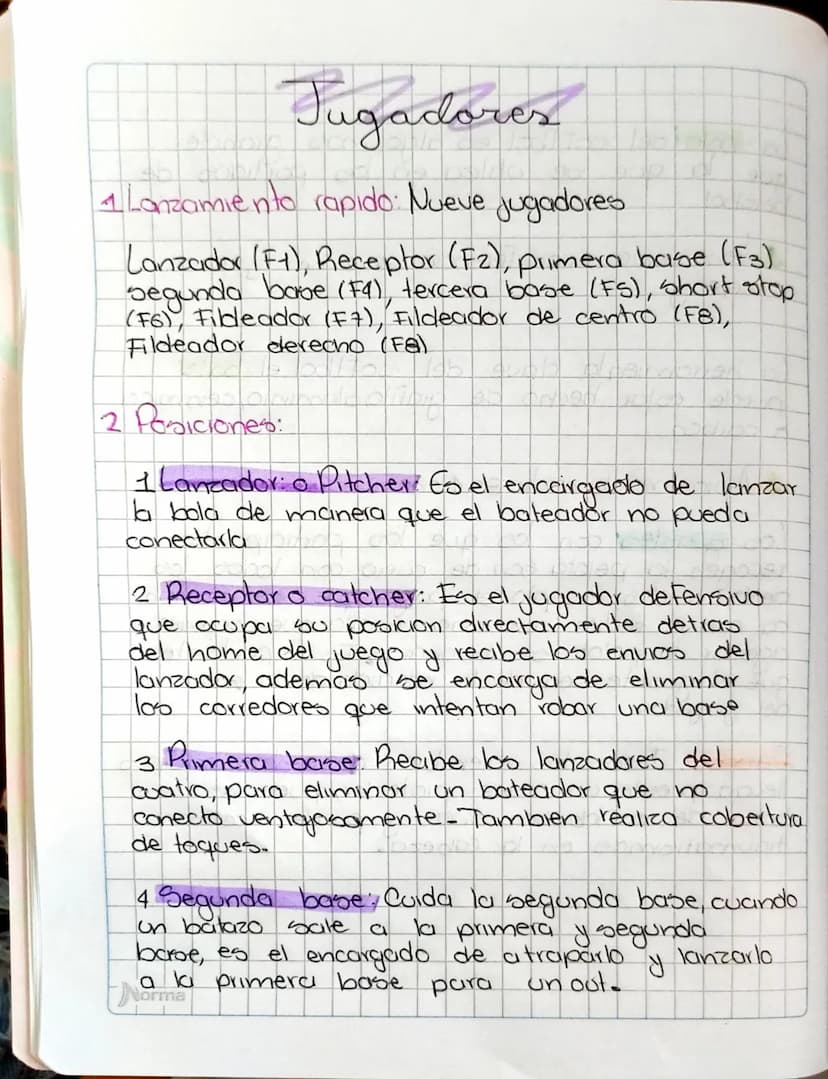 Jugadores
1 Lanzamiento rapido: Nueve jugadores
Lanzador (F1), Receptor (F2), primera base (F3)
segunda base (F4), tercera base (F5), short stop
(F6), Fibleador (F7), Fildeador de centro (F8),
Fildeador derecho (F8)
2 Posiciones:
1 Lanzador: o Pitcher: Es el encargado de lanzar
la bola de manera que el bateador no pueda
conectarla
2 Receptor o catcher: Es el jugador defensivo
que ocupa su posicion directamente detras
del home del juego y recibe los envios del
lanzador, ademas se encarga de eliminar
los corredores que intentan robar una base
3 Primera base: Recibe los lanzadores del
cuatro, para eliminar un bateador que no
conecto ventajosamente - Tambien realiza cobertura
de toques.
4 Segunda base: Cuida la segunda base, cuando
un batazo sale a la primera y segunda
base, es el encargado de atraparlo y lanzarlo
a la primera base para un out.
Norma